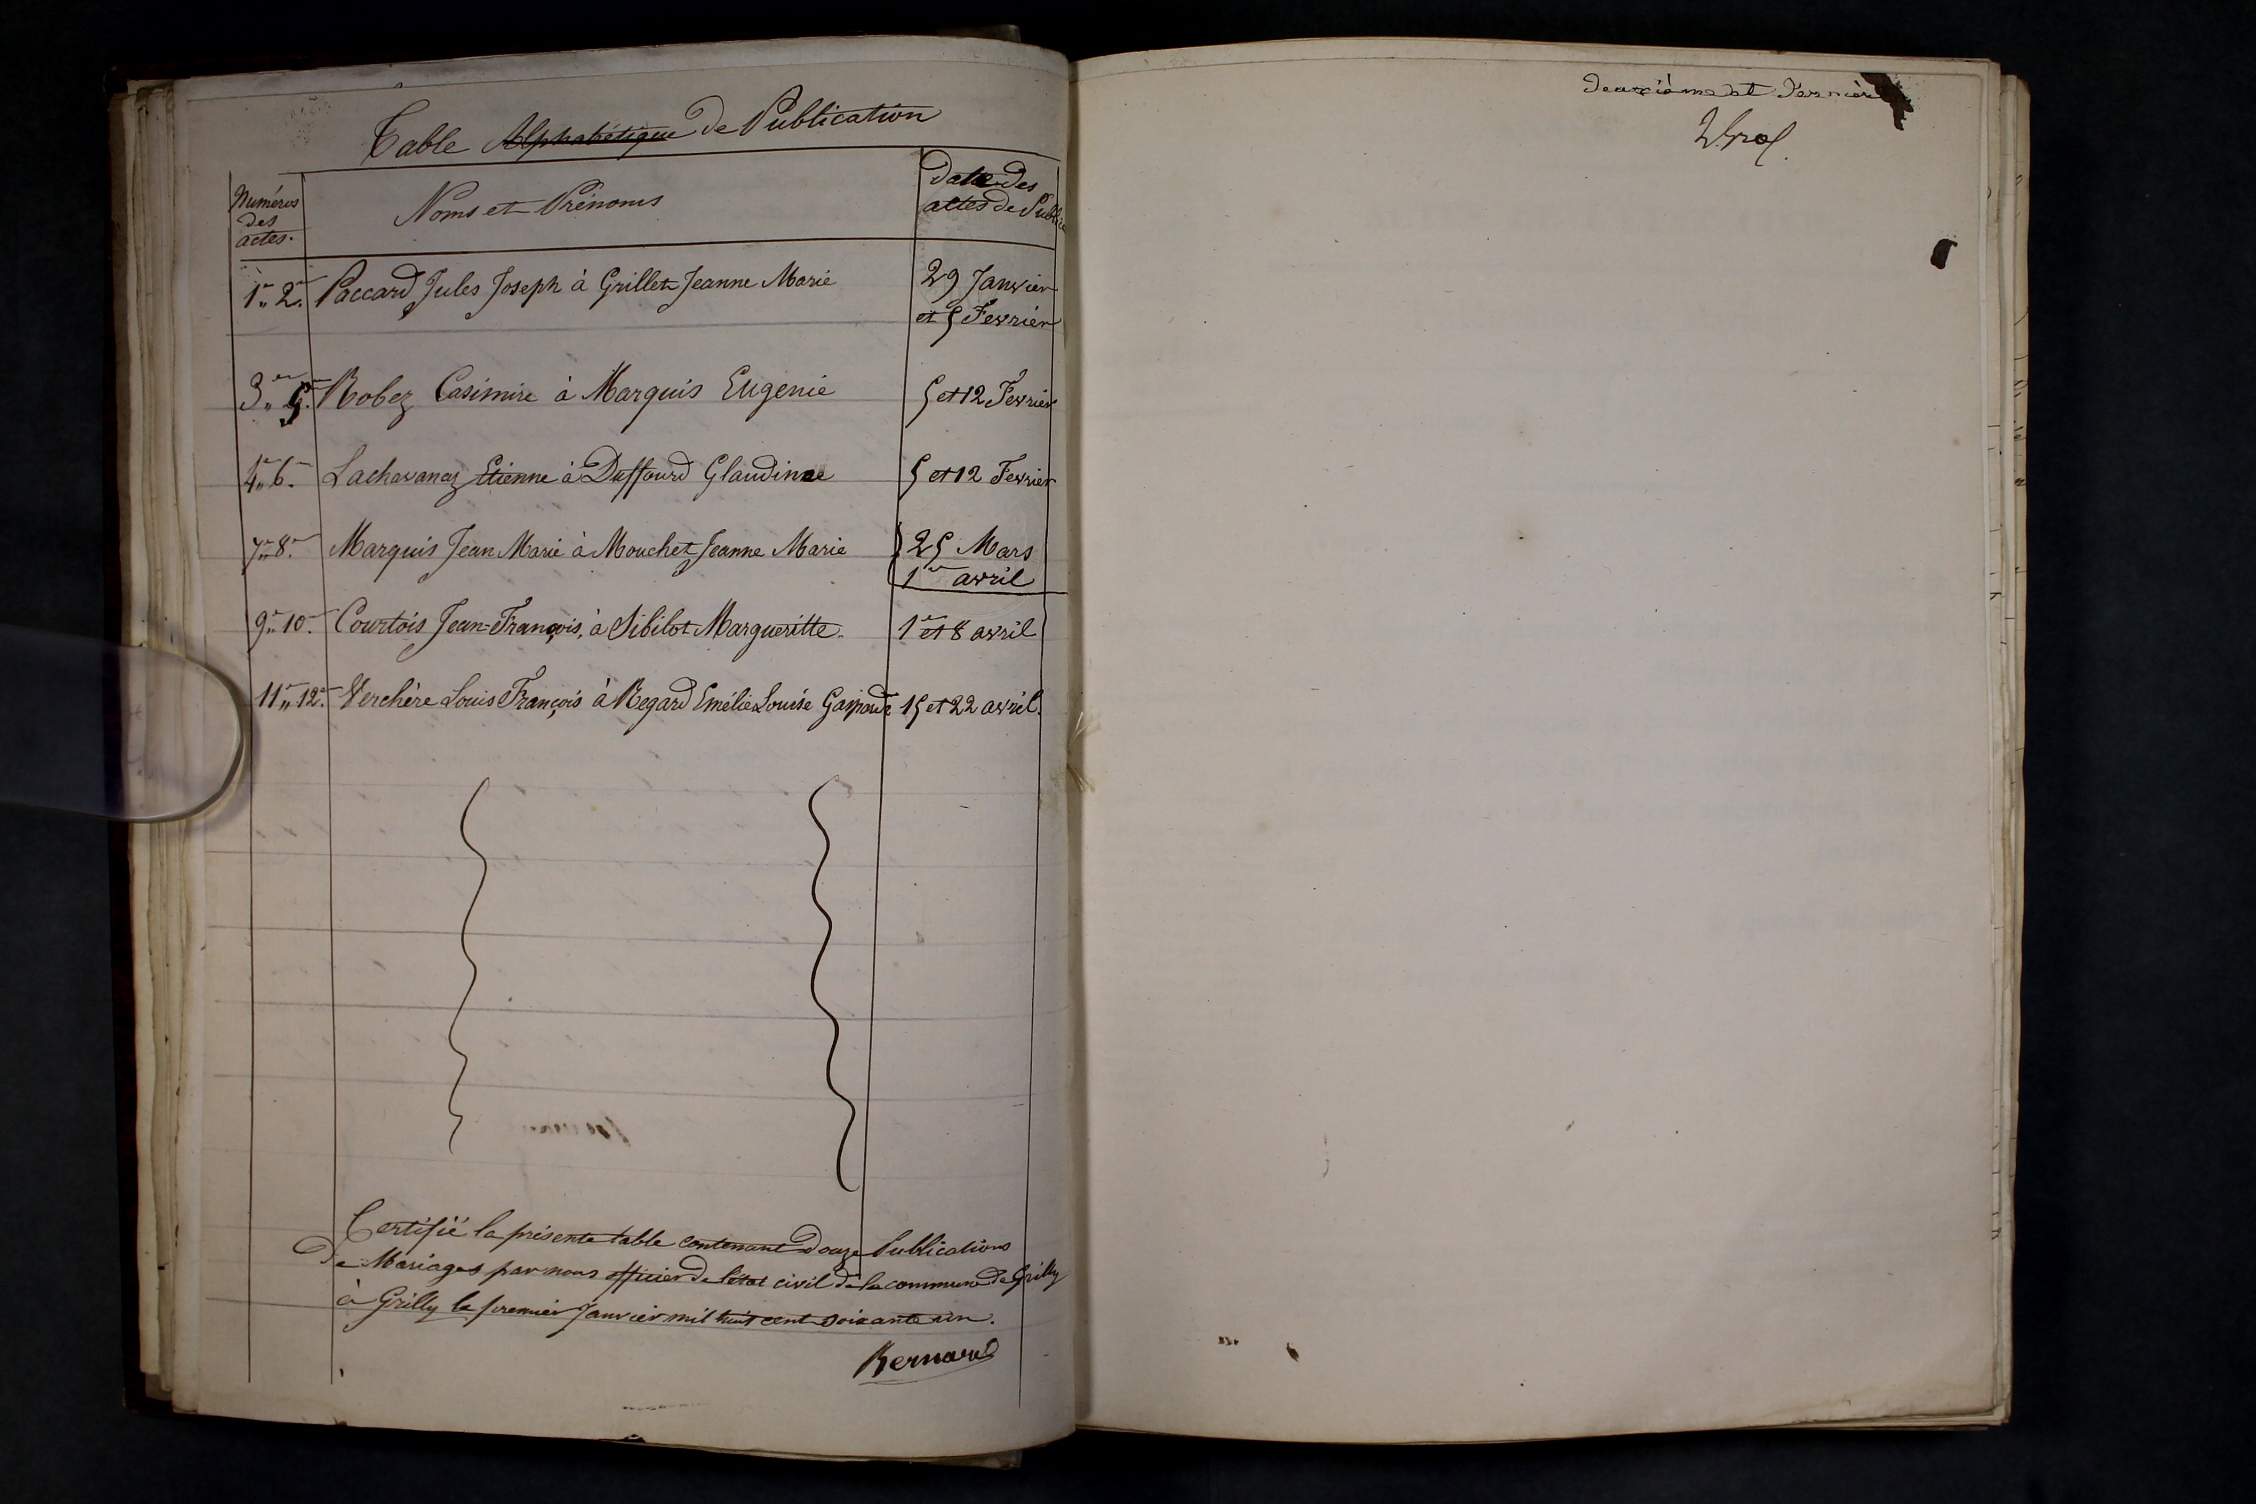 Table Alphabétique de Publication
Numéros
des
actes.
Noms et Prénoms
Date des
actes de Public
1er 2e. Paccard Jules Joseph à Grillet Jeanne Marie 29 Janvier
et 5 Fevrier
3e 5e. Robez Casimire à Marquis Eugenie 5 et 12 Fevrier
4e 6e. Lachavanaz Etienne à Duffourd Glaudine 5 et 12 Fevrier
7e 8e. Marquis Jean Marie à Mouchet Jeanne Marie 25 Mars
1er avril
9e 10e. Courtois Jean-François, à Sibilot Margueritte. 1er et 8 avril
11e 12e. Verchère Louis François à Regard Emélie Louise 15 et 22 avril.
Certifié la présente table contenant Douze Publications
De Mariages par nous officier de l'état civil de la commune de Grilly
à Grilly le premier Janvier mil huit cent soixante un.
Bernard
deuxième et dernière